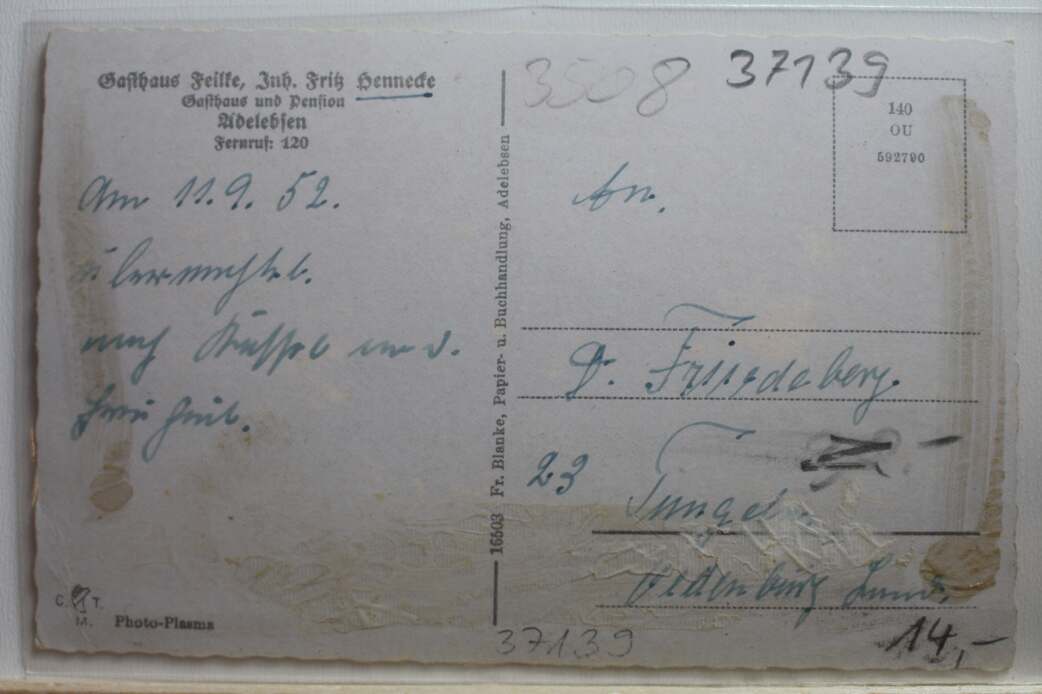 Gasthaus Feilke, Inh. Fritz Hennecke
Gasthaus und Pension
Adelebsen
Fernruf: 120
Am 11.9.52.
nach Kassel
16503 Fr. Blanke, Papier- u. Buchhandlung, Adelebsen
C. T.
M.
Photo-Plasma
3508
37139
140
OU
592790
An.
D. Friedeberg.
23
Tungeln
Oldenburg Land.
37139
14,-